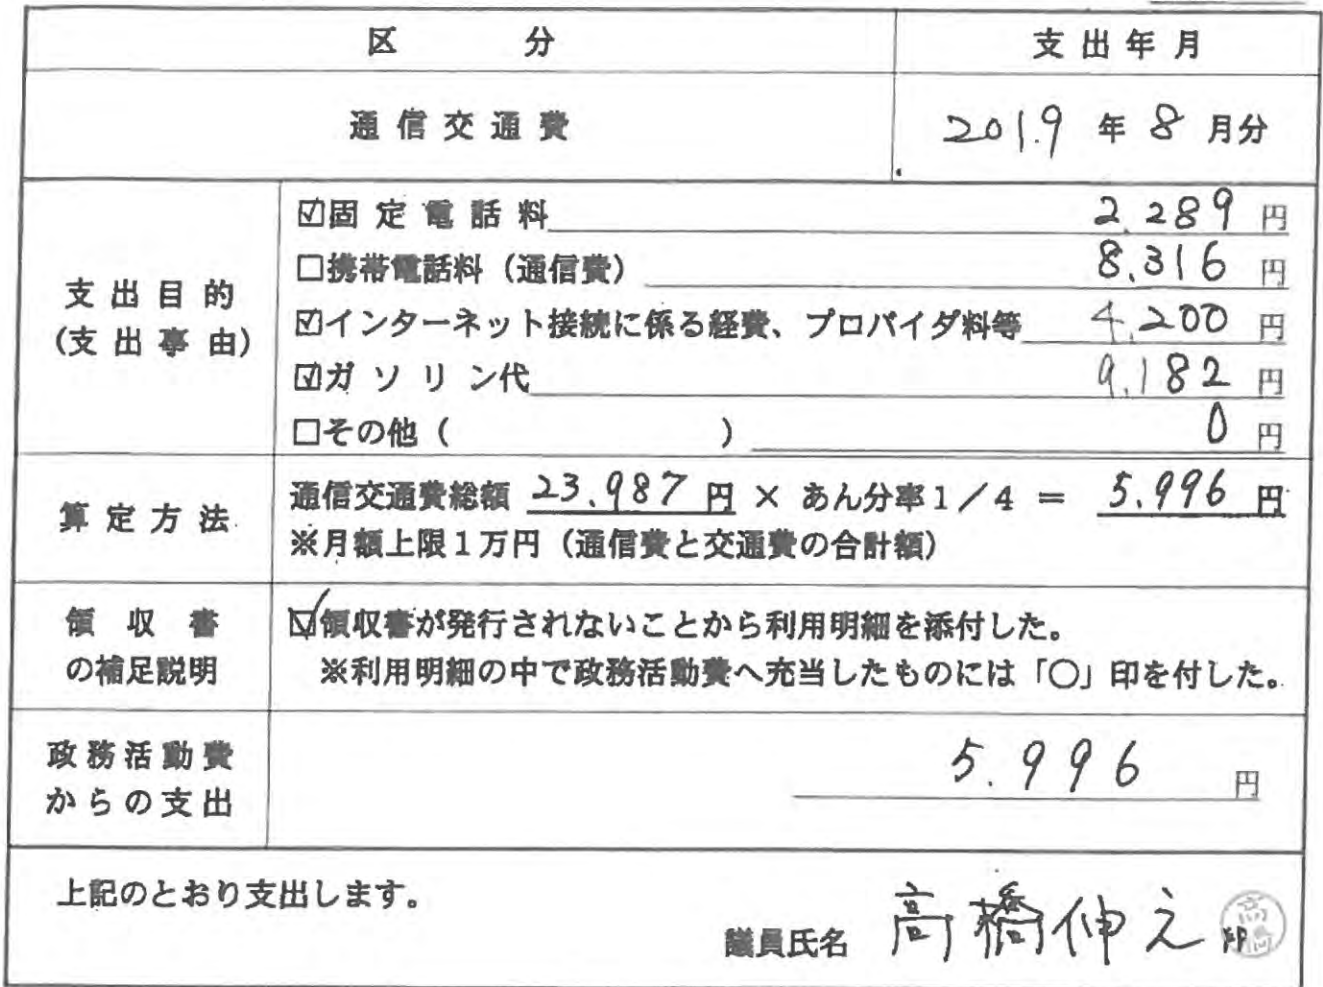 区 分 支出年月
通信交通費 2019 年 8 月分
支出目的
(支出事由)
☑固定電話料 2,289 円
□携帯電話料（通信費） 8,316 円
☑インターネット接続に係る経費、プロバイダ料等 4,200 円
☑ガソリン代 9,182 円
□その他（ ） 0 円
算定方法
通信交通費総額 23.987 円 × あん分率1／4 ＝ 5.996 円
※月額上限1万円（通信費と交通費の合計額）
領収書
の補足説明
☑領収書が発行されないことから利用明細を添付した。
※利用明細の中で政務活動費へ充当したものには「○」印を付した。
政務活動費
からの支出
5.996 円
上記のとおり支出します。
議員氏名 高橋伸之 印
高橋